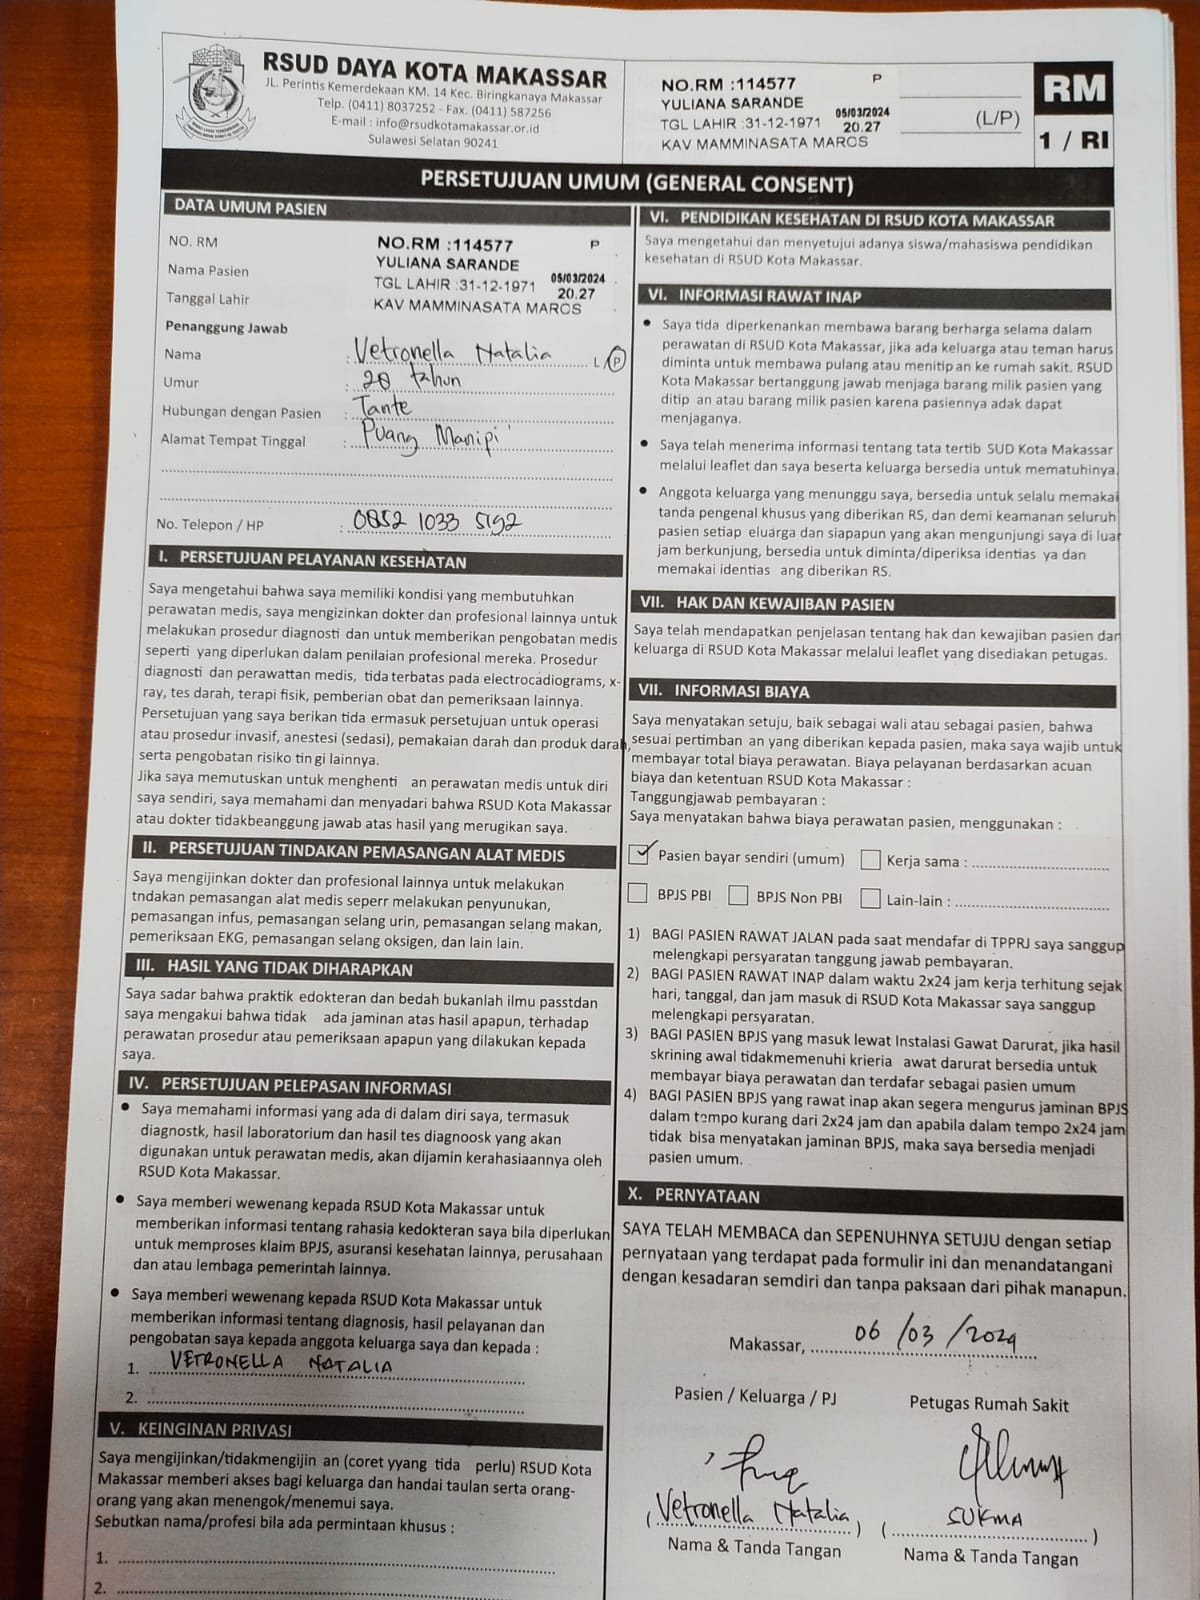 RSUD DAYA KOTA MAKASSAR
JL. Perintis Kemerdekaan KM. 14 Kec. Biringkanaya Makassar
Telp. (0411) 8037252 - Fax. (0411) 587256
E-mail : info@rsudkotamakassar.or.id
Sulawesi Selatan 90241
NO.RM :114577 P
YULIANA SARANDE 05/03/2024
TGL LAHIR :31-12-1971 20.27
KAV MAMMINASATA MAROS
(L/P)
RM
1 / RI
PERSETUJUAN UMUM (GENERAL CONSENT)
DATA UMUM PASIEN
NO. RM NO.RM :114577 P
Nama Pasien YULIANA SARANDE 05/03/2024
Tanggal Lahir TGL LAHIR :31-12-1971 20.27
KAV MAMMINASATA MAROS
Penanggung Jawab
Nama : Vetronella Natalia L/P
Umur : 28 tahun
Hubungan dengan Pasien : Tante
Alamat Tempat Tinggal : Puang Manipi
No. Telepon / HP : 0852 1033 5192
I. PERSETUJUAN PELAYANAN KESEHATAN
Saya mengetahui bahwa saya memiliki kondisi yang membutuhkan
perawatan medis, saya mengizinkan dokter dan profesional lainnya untuk
melakukan prosedur diagnosti dan untuk memberikan pengobatan medis
seperti yang diperlukan dalam penilaian profesional mereka. Prosedur
diagnosti dan perawattan medis, tida terbatas pada electrocadiograms, x-
ray, tes darah, terapi fisik, pemberian obat dan pemeriksaan lainnya.
Persetujuan yang saya berikan tida ermasuk persetujuan untuk operasi
atau prosedur invasif, anestesi (sedasi), pemakaian darah dan produk darah,
serta pengobatan risiko tin gi lainnya.
Jika saya memutuskan untuk menghenti an perawatan medis untuk diri
saya sendiri, saya memahami dan menyadari bahwa RSUD Kota Makassar
atau dokter tidakbeanggung jawab atas hasil yang merugikan saya.
II. PERSETUJUAN TINDAKAN PEMASANGAN ALAT MEDIS
Saya mengijinkan dokter dan profesional lainnya untuk melakukan
tndakan pemasangan alat medis seperr melakukan penyunukan,
pemasangan infus, pemasangan selang urin, pemasangan selang makan,
pemeriksaan EKG, pemasangan selang oksigen, dan lain lain.
III. HASIL YANG TIDAK DIHARAPKAN
Saya sadar bahwa praktik edokteran dan bedah bukanlah ilmu passtdan
saya mengakui bahwa tidak ada jaminan atas hasil apapun, terhadap
perawatan prosedur atau pemeriksaan apapun yang dilakukan kepada
saya.
IV. PERSETUJUAN PELEPASAN INFORMASI
• Saya memahami informasi yang ada di dalam diri saya, termasuk
diagnostk, hasil laboratorium dan hasil tes diagnoosk yang akan
digunakan untuk perawatan medis, akan dijamin kerahasiaannya oleh
RSUD Kota Makassar.
• Saya memberi wewenang kepada RSUD Kota Makassar untuk
memberikan informasi tentang rahasia kedokteran saya bila diperlukan
untuk memproses klaim BPJS, asuransi kesehatan lainnya, perusahaan
dan atau lembaga pemerintah lainnya.
• Saya memberi wewenang kepada RSUD Kota Makassar untuk
memberikan informasi tentang diagnosis, hasil pelayanan dan
pengobatan saya kepada anggota keluarga saya dan kepada :
1. VETRONELLA NATALIA
2.
V. KEINGINAN PRIVASI
Saya mengijinkan/tidakmengijin an (coret yyang tida perlu) RSUD Kota
Makassar memberi akses bagi keluarga dan handai taulan serta orang-
orang yang akan menengok/menemui saya.
Sebutkan nama/profesi bila ada permintaan khusus :
1.
2.
VI. PENDIDIKAN KESEHATAN DI RSUD KOTA MAKASSAR
Saya mengetahui dan menyetujui adanya siswa/mahasiswa pendidikan
kesehatan di RSUD Kota Makassar.
VI. INFORMASI RAWAT INAP
• Saya tida diperkenankan membawa barang berharga selama dalam
perawatan di RSUD Kota Makassar, jika ada keluarga atau teman harus
diminta untuk membawa pulang atau menitip an ke rumah sakit. RSUD
Kota Makassar bertanggung jawab menjaga barang milik pasien yang
ditip an atau barang milik pasien karena pasiennya adak dapat
menjaganya.
• Saya telah menerima informasi tentang tata tertib SUD Kota Makassar
melalui leaflet dan saya beserta keluarga bersedia untuk mematuhinya.
• Anggota keluarga yang menunggu saya, bersedia untuk selalu memakai
tanda pengenal khusus yang diberikan RS, dan demi keamanan seluruh
pasien setiap eluarga dan siapapun yang akan mengunjungi saya di luar
jam berkunjung, bersedia untuk diminta/diperiksa identias ya dan
memakai identias ang diberikan RS.
VII. HAK DAN KEWAJIBAN PASIEN
Saya telah mendapatkan penjelasan tentang hak dan kewajiban pasien dan
keluarga di RSUD Kota Makassar melalui leaflet yang disediakan petugas.
VII. INFORMASI BIAYA
Saya menyatakan setuju, baik sebagai wali atau sebagai pasien, bahwa
sesuai pertimban an yang diberikan kepada pasien, maka saya wajib untuk
membayar total biaya perawatan. Biaya pelayanan berdasarkan acuan
biaya dan ketentuan RSUD Kota Makassar :
Tanggungjawab pembayaran :
Saya menyatakan bahwa biaya perawatan pasien, menggunakan :
Pasien bayar sendiri (umum) Kerja sama :
BPJS PBI BPJS Non PBI Lain-lain :
1) BAGI PASIEN RAWAT JALAN pada saat mendafar di TPPRJ saya sanggup
melengkapi persyaratan tanggung jawab pembayaran.
2) BAGI PASIEN RAWAT INAP dalam waktu 2x24 jam kerja terhitung sejak
hari, tanggal, dan jam masuk di RSUD Kota Makassar saya sanggup
melengkapi persyaratan.
3) BAGI PASIEN BPJS yang masuk lewat Instalasi Gawat Darurat, jika hasil
skrining awal tidakmemenuhi krieria awat darurat bersedia untuk
membayar biaya perawatan dan terdafar sebagai pasien umum
4) BAGI PASIEN BPJS yang rawat inap akan segera mengurus jaminan BPJS
dalam tempo kurang dari 2x24 jam dan apabila dalam tempo 2x24 jam
tidak bisa menyatakan jaminan BPJS, maka saya bersedia menjadi
pasien umum.
X. PERNYATAAN
SAYA TELAH MEMBACA dan SEPENUHNYA SETUJU dengan setiap
pernyataan yang terdapat pada formulir ini dan menandatangani
dengan kesadaran semdiri dan tanpa paksaan dari pihak manapun.
Makassar, 06/03/2024
Pasien / Keluarga / PJ Petugas Rumah Sakit
(Vetronella Natalia) (SUKMA)
Nama & Tanda Tangan Nama & Tanda Tangan